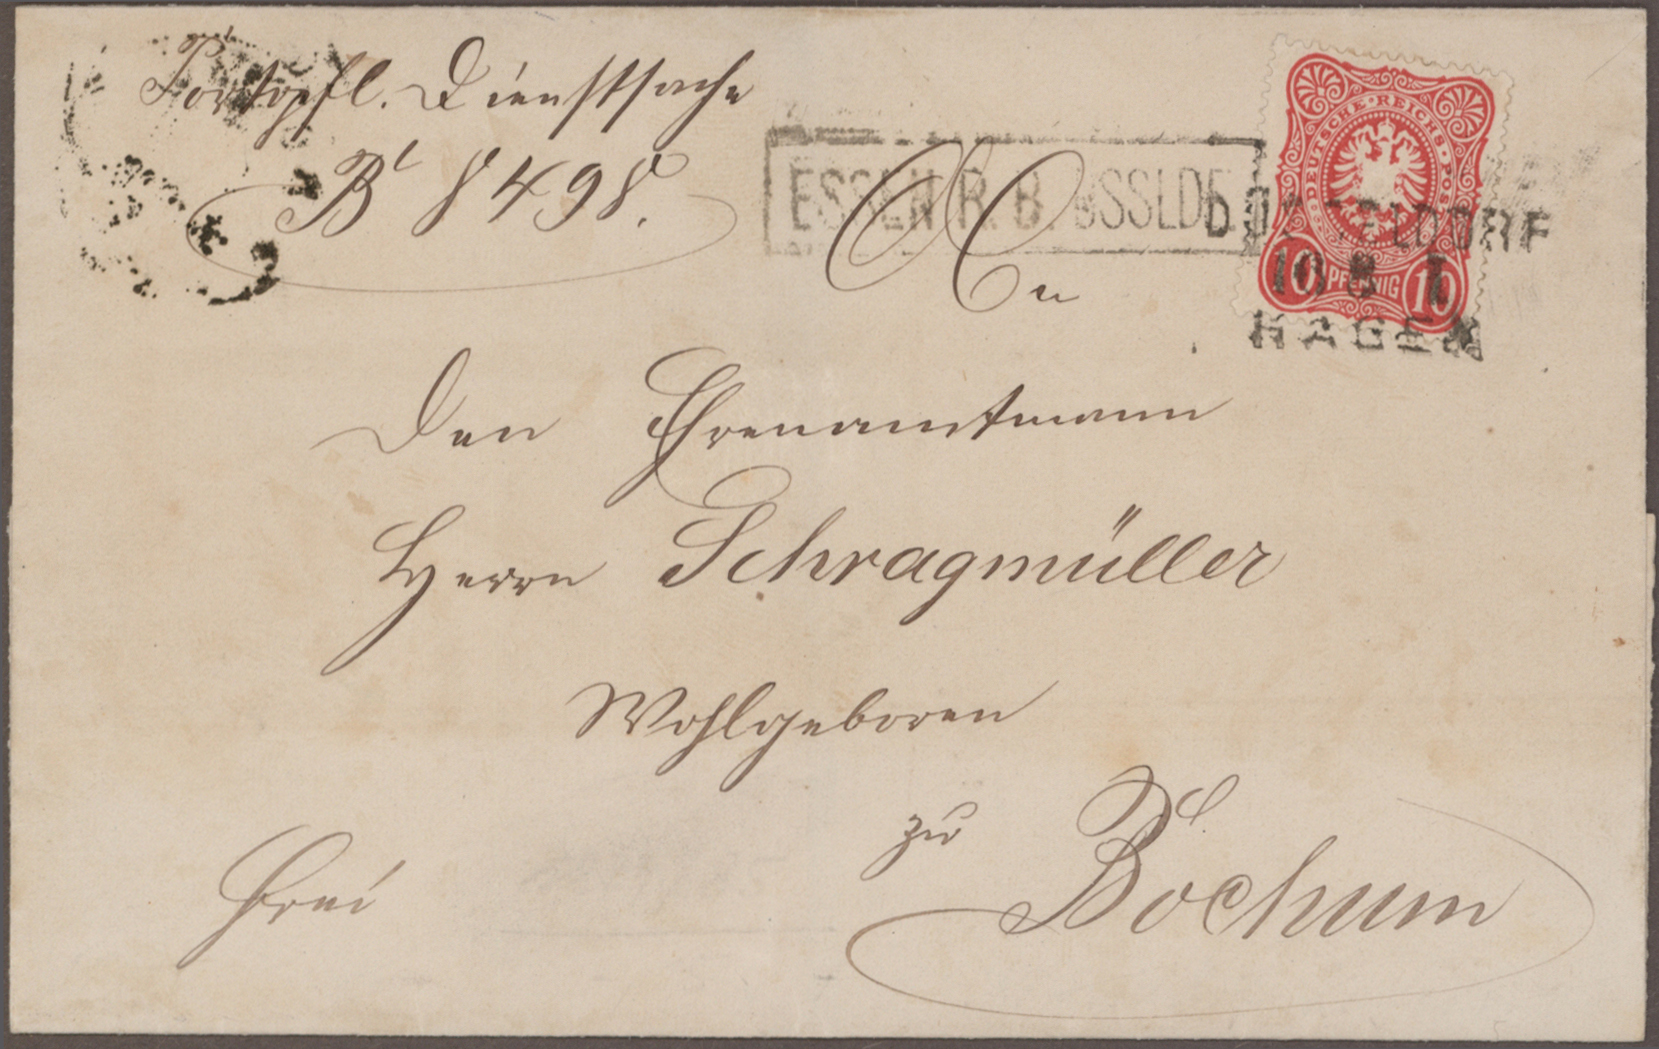 Portopfl. Dienstsache
B 8498.
ESSEN R. B. DSSLDF.
DEUTSCHE · REICHS · POST
10 PFENNIG 10
DÜSSELDORF
10 8 I
HAGEN
An
Den Ehrenamtmann
Herrn Schragmüller
Wohlgeboren
zu Bochum
Frei